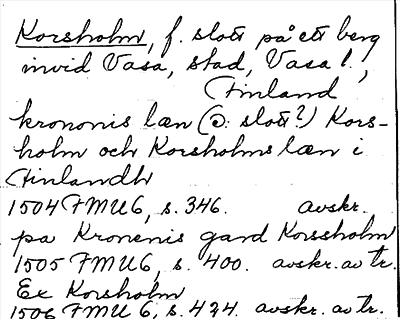 Korsholm, f. slott på ett berg
invid Vasa, stad, Vasa l.,
Finland
krononis læn (ɔ: slott?) Kors-
holm och Korsholms læn i
Finlandh
1504 FMU 6, s. 346. avskr.
pa Kronenis gand Korssholm
1505 FMU 6, s. 400. avskr. av tr.
Ex Korsholm
1506 FMU 6, s. 424. avskr. av tr.